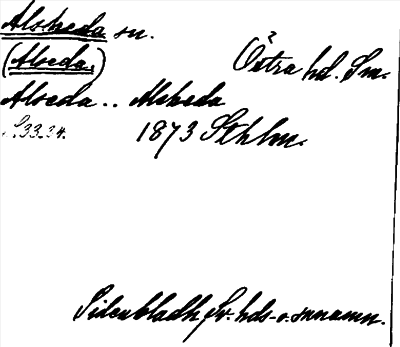 Alsheda sn.
(Alseda.) Östra hd. Sm.
Alseda .. Alsheda
S. 33-34. 1873 Sthlm.
Sidenbladh, Sv. hds- o. snnamn.